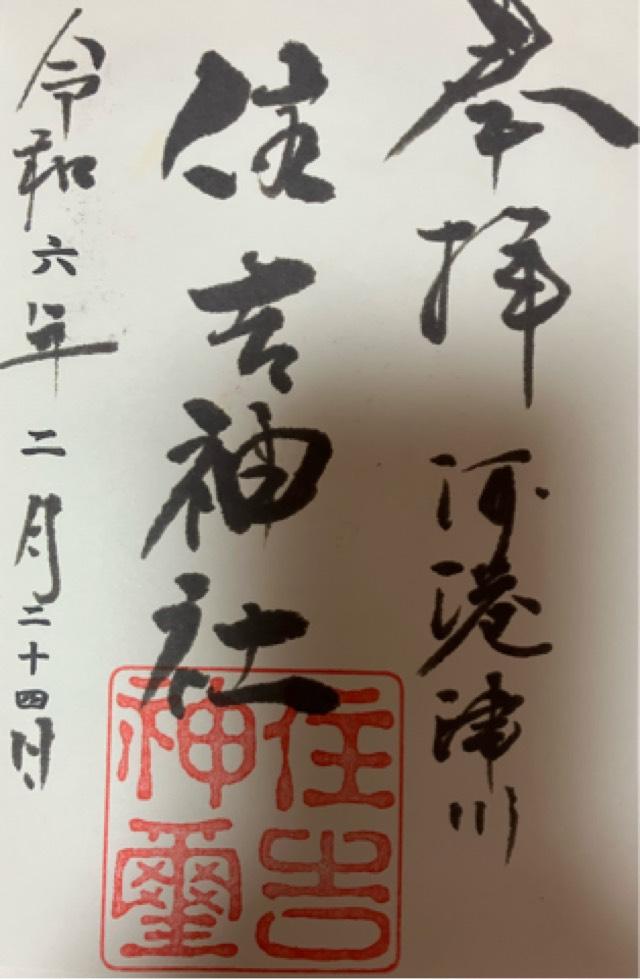 奉拝
河港津川
住吉神社
令和六年二月二十四日
住吉
神璽